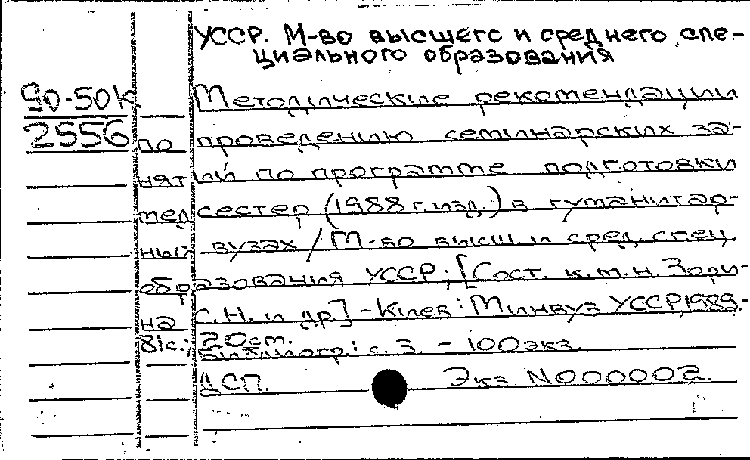 УССР. М-во высшего и среднего спе-
циального образования
90-50к
Методические рекомендации
2556
по проведению семинарских за-
нятий по программе подготовки
медсестер (1988 г. изд.) в гуманитар-
ных вузах / М-во высш. и сред. спец.
образования УССР; [Сост. к.т.н. Зори-
на С.Н. и др.] - Киев: Минвуз УССР, 1989.-
81с.; 20см.
Библиогр.: с. 3. - 100экз.
ДСП. Экз. №000002.